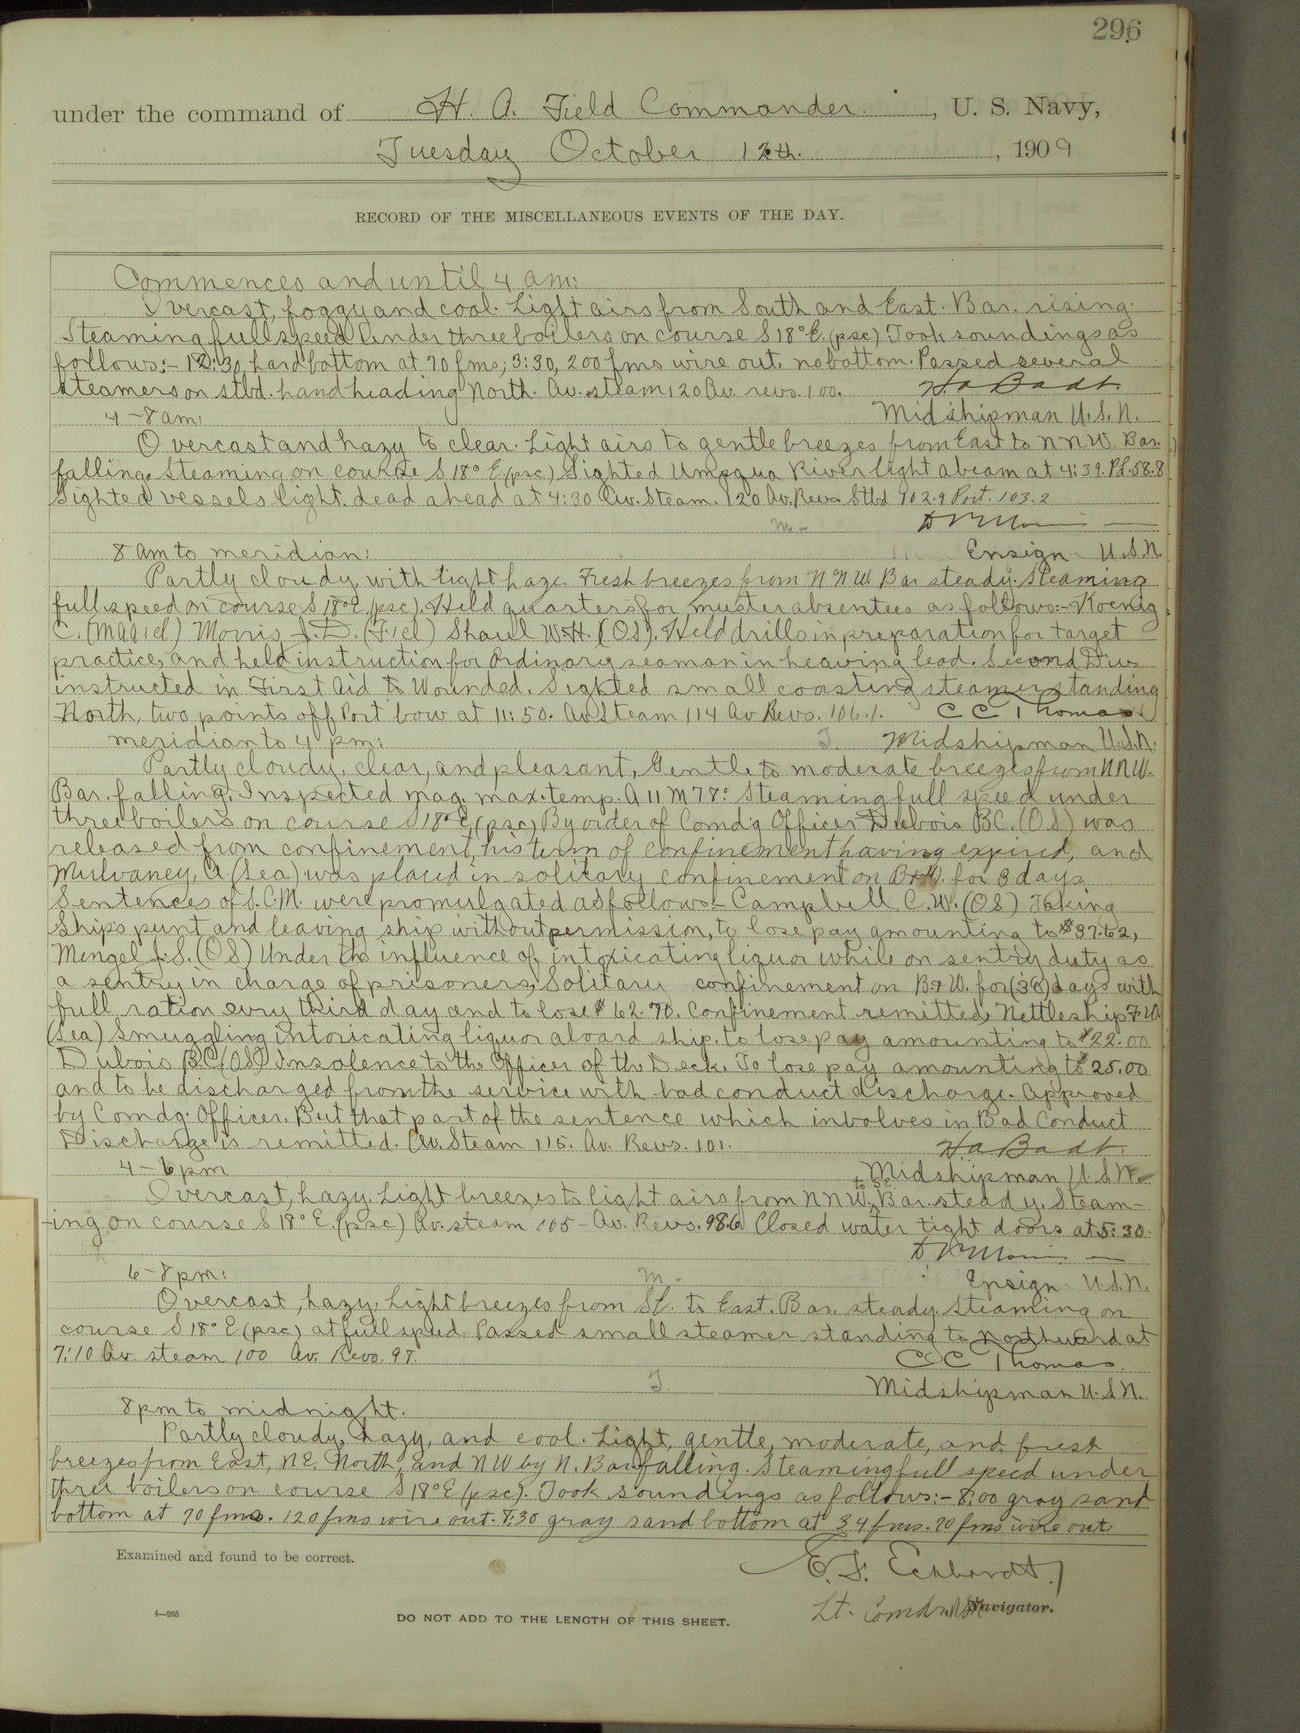 296
under the command of H. A. Field Commander. , U. S. Navy,
Tuesday October 12th. , 1909
RECORD OF THE MISCELLANEOUS EVENTS OF THE DAY.
Commences and until 4 am:
Overcast, foggy and cool. Light airs from South and East. Bar. rising.
Steaming full speed under three boilers on course S 18° E. (psc) Took soundings as
follows:- 12:30, hard bottom at 70 fms; 3:30, 200 fms wire out, no bottom. Passed several
steamers on stbd. hand heading North. Av. steam 120 Av. revs. 100. H a Badt.
4-8 am: Midshipman U.S.N.
Overcast and hazy to clear. Light airs to gentle breezes from East to NNW. Bar.
falling. Steaming on course S 18° E (psc) Sighted Umpqua River light abeam at 4:39. P.L. 58.8
Sighted vessels light. dead ahead at 4:30 Av. Steam. 120 Av. Revs Stbd 102.9 Port. 103.2
M-
8 am to meridian: Ensign U.S.N.
Partly cloudy, with light haze. Fresh breezes from NNW Bar steady. Steaming
full speed on course S 18° E (psc). Held quarters for muster absentees as follows:- Koenig
C. (Ma 1 cl) Morris, J.D. (F1cl) Shaul W.H. (OS). Held drills in preparation for target
practice, and held instruction for Ordinary seaman in heaving lead. Second Div.
instructed in First Aid to Wounded. Sighted small coasting steamer standing
North, two points off Port bow at 11:50. Av Steam 114 Av Revs. 106.1. C C Thomas.
meridian to 4 pm: T. Midshipman U.S.N.
Partly cloudy, clear, and pleasant, Gentle to moderate breezes from NNW.
Bar. falling. Inspected mag. max. temp. A 11 M 78° Steaming full speed under
three boilers on course S 18° E (psc) By order of Comd'g Officer Dubois BC. (OS) was
released from confinement, his term of confinement having expired, and
Mulvaney, A (Sea) was placed in solitary confinement on B+W. for 3 days.
Sentences of S.C.M. were promulgated as follows:- Campbell C.W. (OS) Taking
Ships punt and leaving ship without permission, to lose pay amounting to $37.62,
Mengel J.S. (OS) Under the influence of intoxicating liquor while on sentry duty as
a sentry in charge of prisoners, Solitary confinement on B+W. for (30) days with
full ration every third day and to lose $62.70. Confinement remitted, Nettleship F.W.
(Sea) Smuggling intoxicating liquor aboard ship. to lose pay amounting to $22.00
Dubois B.C. (OS) Insolence to the Officer of the Deck. To lose pay amounting to $25.00
and to be discharged from the service with bad conduct discharge. Approved
by Comdg. Officer. But that part of the sentence which involves in Bad Conduct
Discharge is remitted. Av. Steam 115. Av. Revs. 101. H a Badt.
4-6 pm Midshipman U.S.N.
Overcast, hazy. Light breezes to light airs from NNW to SE, Bar. steady. Steam-
-ing on course S 18° E. (psc) Av. steam 105 - Av. Revs. 98.6 Closed water tight doors at 5:30.
6-8 pm: M- Ensign U.S.N.
Overcast, hazy. Light breezes from SE. to East. Bar. steady. Steaming on
course S 18° E (psc) at full speed. Passed small steamer standing to northward at
7:10 Av. steam 100 Av. Revs. 98. C C Thomas.
T. Midshipman U.S.N.
8 pm to midnight.
Partly cloudy, hazy, and cool. Light, gentle, moderate, and fresh
breezes from East, NE. North, and NW by N. Bar falling. Steaming full speed under
three boilers on course S 18° E (psc). Took soundings as follows:- 8:00 gray sand
bottom at 70 fms. 120 fms wire out. 8:30 gray sand bottom at 34 fms. 70 fms wire out
Examined and found to be correct.
E. F. Eckhardt,
Lt. Comdr. USN Navigator.
4-265
DO NOT ADD TO THE LENGTH OF THIS SHEET.